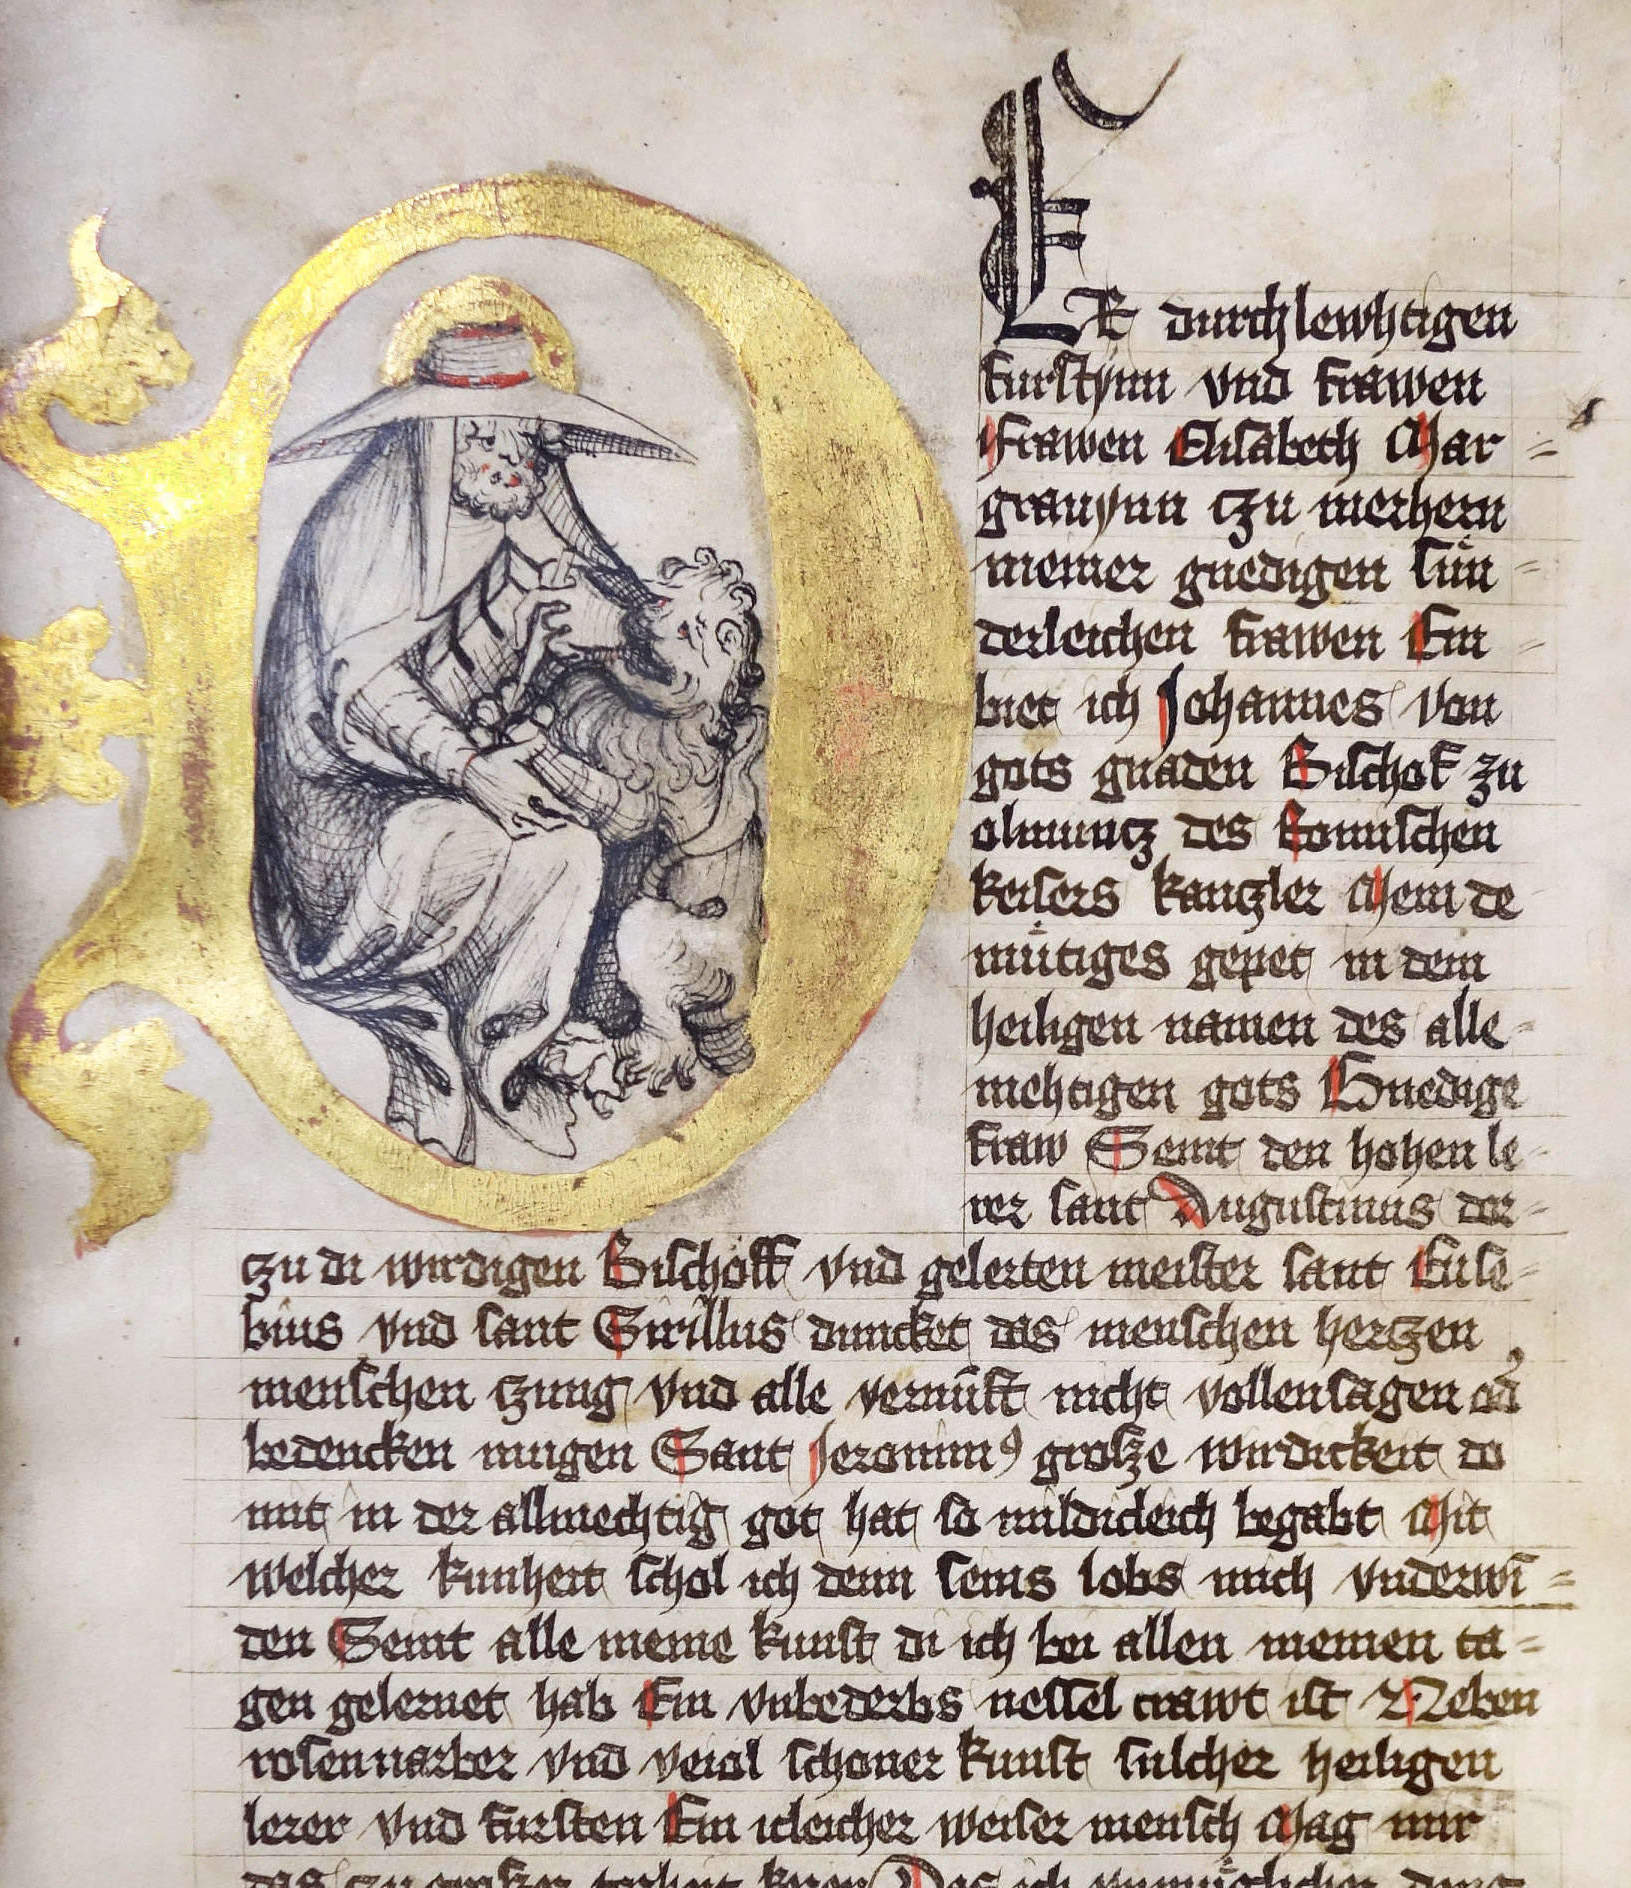 ER durchlewhtigen
furstynn vnd frawen
frawen Elisabeth Mar=
grauynn czu merhern
meiner gnedigen sun=
derleichen frawen Em=
biet ich Johannes von
gots gnaden Bischof zu
olmuntz des Romischen
keisers kantzler Mein de
mutiges gepet in dem
heiligen namen des alle=
mehtigen gots Gnedige
fraw Seint den hohen le=
rer sant Augustinus der=
czu di wirdigen Bischoff vnd gelerten meister sant Euse=
bius vnd sant Cirillus duncket das menschen hertzen
menschen czung vnd alle vernuft nicht vollensagen od'
bedencken mugen Sant Jeronimꝰ grosze wirdickeit do
mit in der allmechtig got hat so mildicleich begabt Mit
welcher kunheit schol ich denn seins lobs mich vnderwī=
den Seint alle meine kunst di ich bei allen meinen ta=
gen gelernet hab Ein vnbederbs nessel crawt ist Neben
rosenuarber vnd veiol schoner kunst sulcher heiligen
lerer vnd fursten Ein icleicher weiser mensch Mag mir
das czu grosser torheit keren Das ich vnmuglicher ding